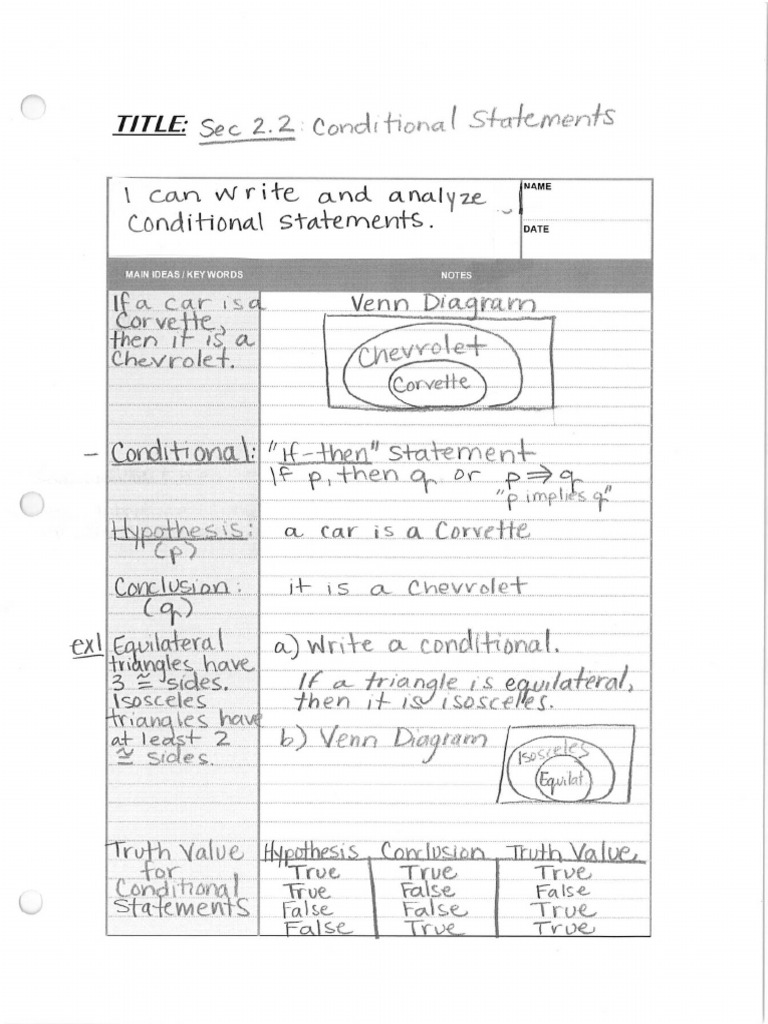 TITLE: Sec 2.2: Conditional Statements
I can write and analyze
conditional statements.
NAME
DATE
MAIN IDEAS / KEY WORDS
NOTES
If a car is a
Corvette,
then it is a
Chevrolet.
Venn Diagram
Chevrolet
Corvette
- Conditional: "if-then" statement
If p, then q or p ⇒ q
"p implies q"
Hypothesis: a car is a Corvette
(p)
Conclusion: it is a Chevrolet
(q)
ex1 Equilateral
triangles have
3 ≅ sides.
Isosceles
triangles have
at least 2
≅ sides.
a) Write a conditional.
If a triangle is equilateral,
then it is isosceles.
b) Venn Diagram
Isosceles
Equilat.
Truth Value
for
Conditional
Statements
Hypothesis Conclusion Truth Value
True True True
True False False
False False True
False True True